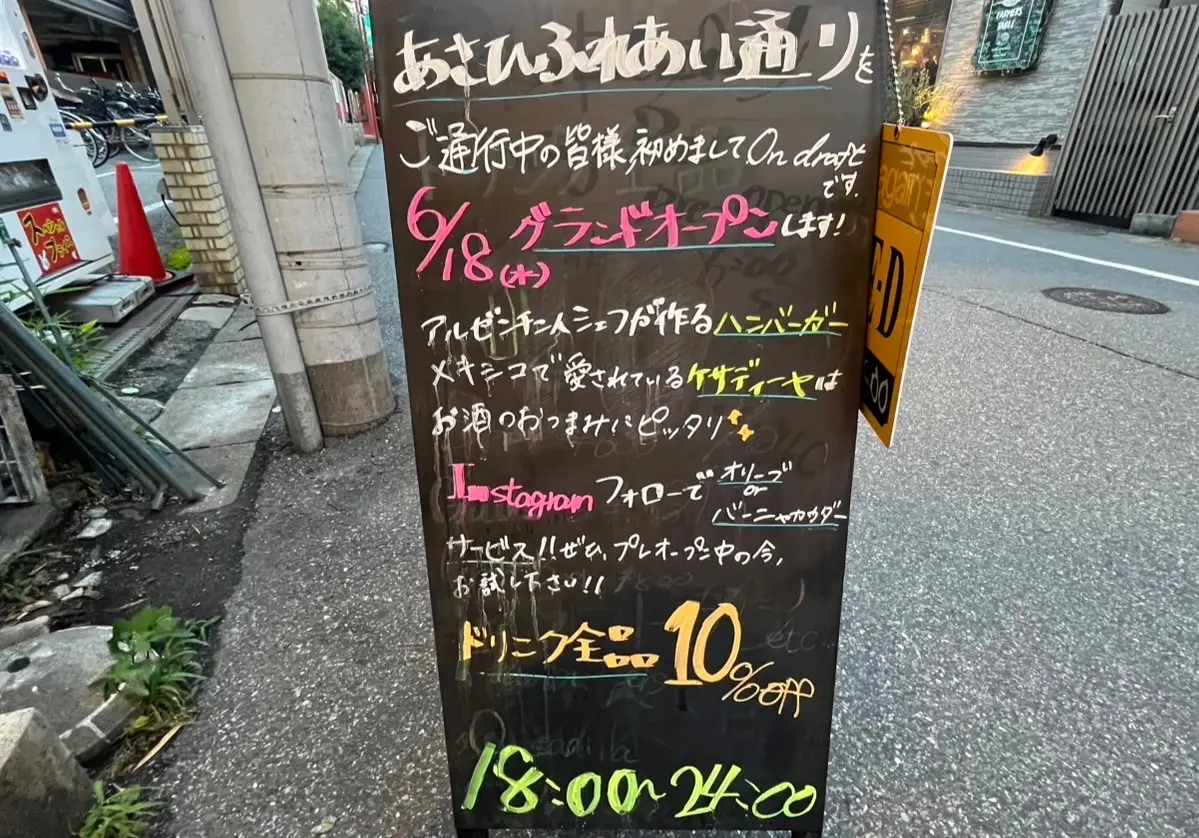 あさひふれあい通りを
ご通行中の皆様、初めましてOn draftと
です。
6/18(水) グランドオープンします!
アルゼンチン人シェフが作るハンバーガー
メキシコで愛されているケサディーヤは
お酒のおつまみにピッタリ
Instagramフォローで オリーブ
or
バーニャカウダー
サービス!!ぜひ、プレオープン中の今、
お試し下さい!!
ドリンク全品10%off
18:00~24:00
スペシャル
プライス
FARMERS